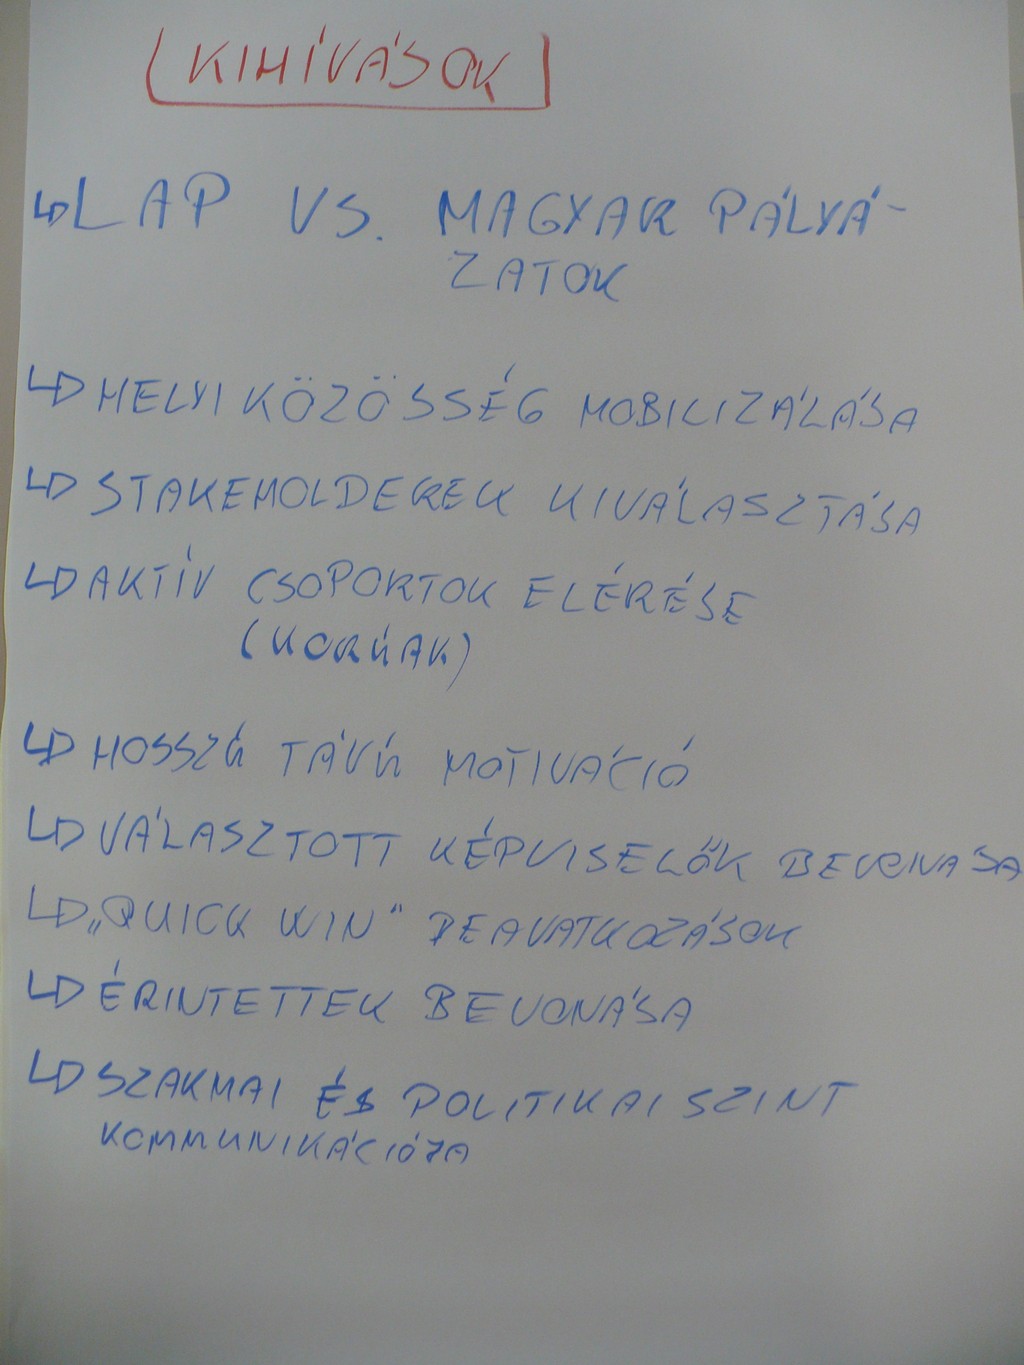 KIHÍVÁSOK
↳ LAP VS. MAGYAR PÁLYÁ-
ZATOK
↳ HELYI KÖZÖSSÉG MOBILIZÁLÁSA
↳ STAKEHOLDEREK KIVÁLASZTÁSA
↳ AKTÍV CSOPORTOK ELÉRÉSE
(KORÚAK)
↳ HOSSZÚ TÁVÚ MOTIVÁCIÓ
↳ VÁLASZTOTT KÉPVISELŐK BEVONÁSA
↳ „QUICK WIN" BEAVATKOZÁSOK
↳ ÉRINTETTEK BEVONÁSA
↳ SZAKMAI ÉS POLITIKAI SZINT
KOMMUNIKÁCIÓJA